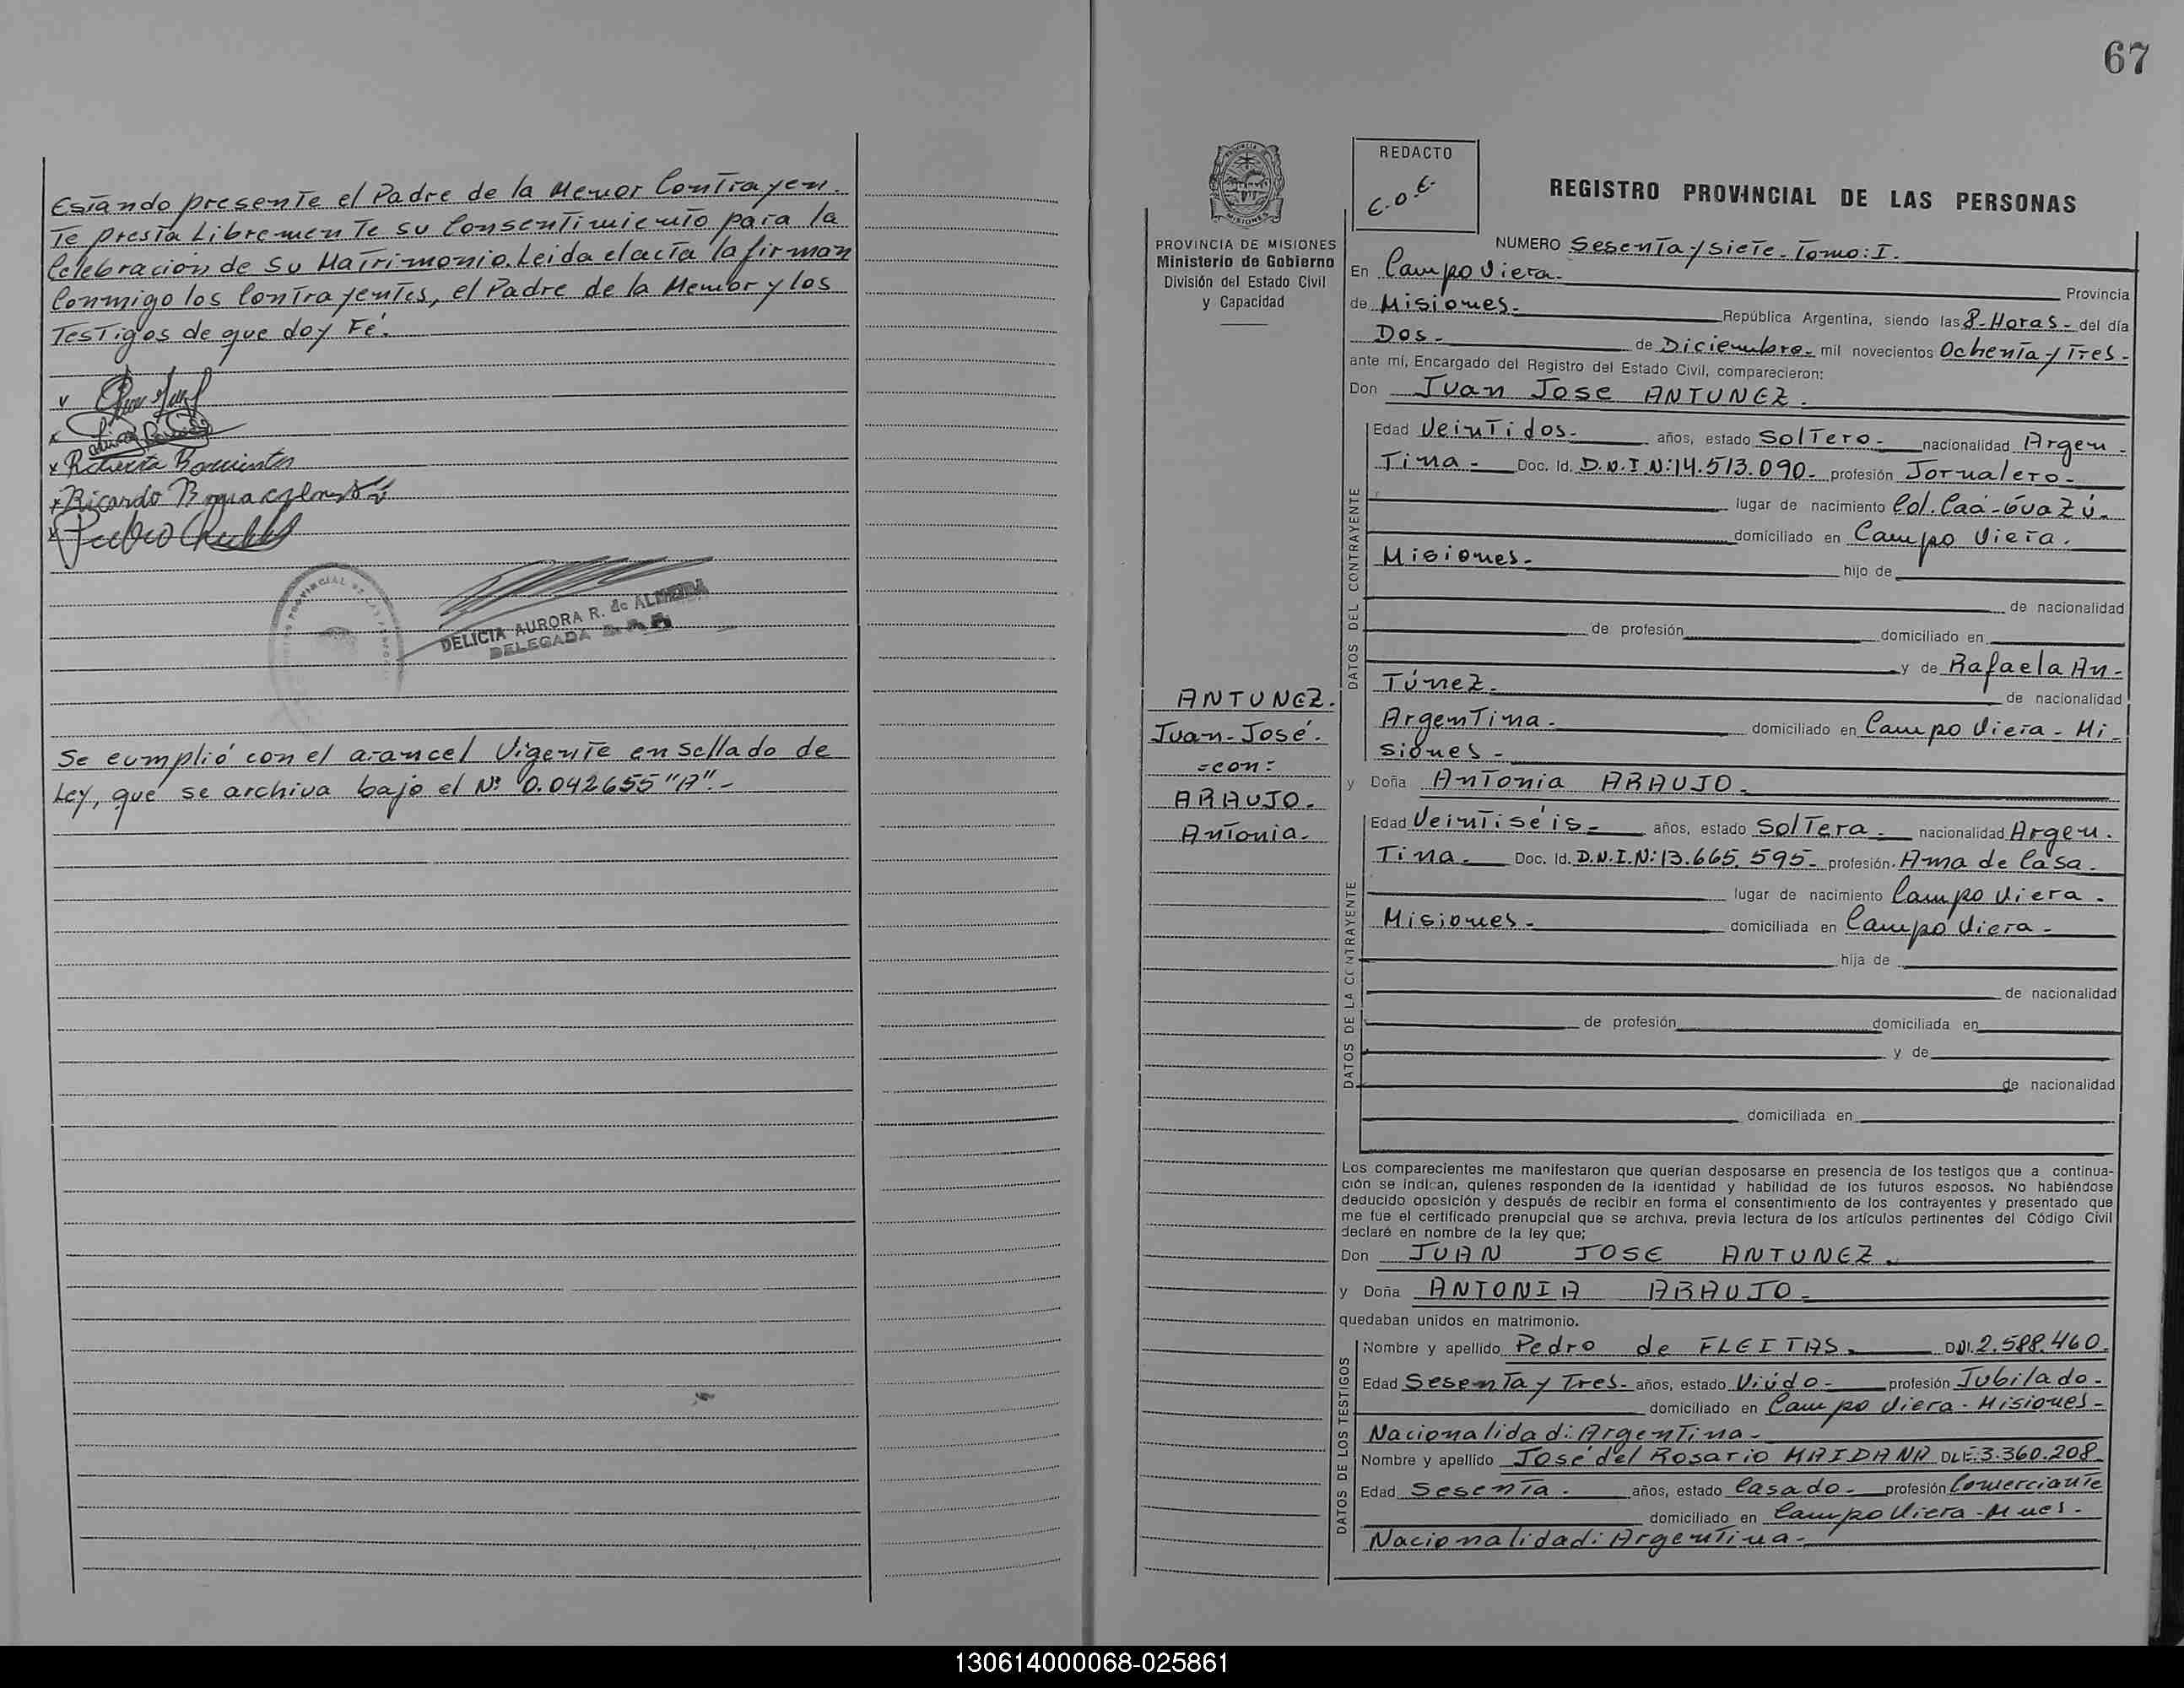 Estando presente el Padre de la Menor Contrayen-
Te presta Libremente su Consentimiento para la
Celebracion de su Matrimonio. Leida el acta la firman
Conmigo los Contrayentes, el Padre de la Menor y los
Testigos de que doy Fé.
Ricardo
Pedro
DELICIA AURORA R. de ALMEIDA
DELEGADA
Se cumplió con el arancel Vigente en sellado de
Ley, que se archiva bajo el Nº 0.042655 "A".-
67
PROVINCIA DE MISIONES
Ministerio de Gobierno
División del Estado Civil
y Capacidad
REDACTO
REGISTRO PROVINCIAL DE LAS PERSONAS
NUMERO Sesenta y siete. Tomo: I.
En Campo Viera. Provincia
de Misiones. República Argentina, siendo las 8-Horas- del día
Dos- de Diciembre- mil novecientos Ochenta y Tres-
ante mí, Encargado del Registro del Estado Civil, comparecieron:
Don Juan Jose ANTUNEZ.
ANTUNEZ.
Juan-José.
=con=
ARAUJO.
Antonia.
DATOS DEL CONTRAYENTE
Edad Veintidos- años, estado Soltero- nacionalidad Argen-
Tina- Doc. Id. D.N.I N:14.513.090- profesión Jornalero-
lugar de nacimiento Col. Caá-Guazú-
domiciliado en Campo Viera.
Misiones- hijo de
de nacionalidad
de profesión domiciliado en
y de Rafaela An-
Túnez. de nacionalidad
Argentina- domiciliado en Campo Viera- Mi-
siones-
y Doña Antonia ARAUJO-
DATOS DE LA CONTRAYENTE
Edad Veintiséis- años, estado Soltera- nacionalidad Argen-
Tina- Doc. Id. D.N.I.N:13.665.595- profesión Ama de Casa-
lugar de nacimiento Campo Viera-
Misiones- domiciliada en Campo Viera-
hija de
de nacionalidad
de profesión domiciliada en
y de
de nacionalidad
domiciliada en
Los comparecientes me manifestaron que querían desposarse en presencia de los testigos que a continua-
ción se indican, quienes responden de la identidad y habilidad de los futuros esposos. No habiéndose
deducido oposición y después de recibir en forma el consentimiento de los contrayentes y presentado que
me fue el certificado prenupcial que se archiva, previa lectura de los artículos pertinentes del Código Civil
declaré en nombre de la ley que;
Don JUAN JOSE ANTUNEZ.
y Doña ANTONIA ARAUJO-
quedaban unidos en matrimonio.
DATOS DE LOS TESTIGOS
Nombre y apellido Pedro de FLEITAS. DNI. 2.588.460.
Edad Sesenta y Tres- años, estado Viúdo- profesión Jubilado-
domiciliado en Campo Viera- Misiones-
Nacionalidad: Argentina-
Nombre y apellido José del Rosario MAIDANA DLE: 3.360.208
Edad Sesenta- años, estado Casado- profesión Comerciante
domiciliado en Campo Viera-Mnes-
Nacionalidad: Argentina-
130614000068-025861